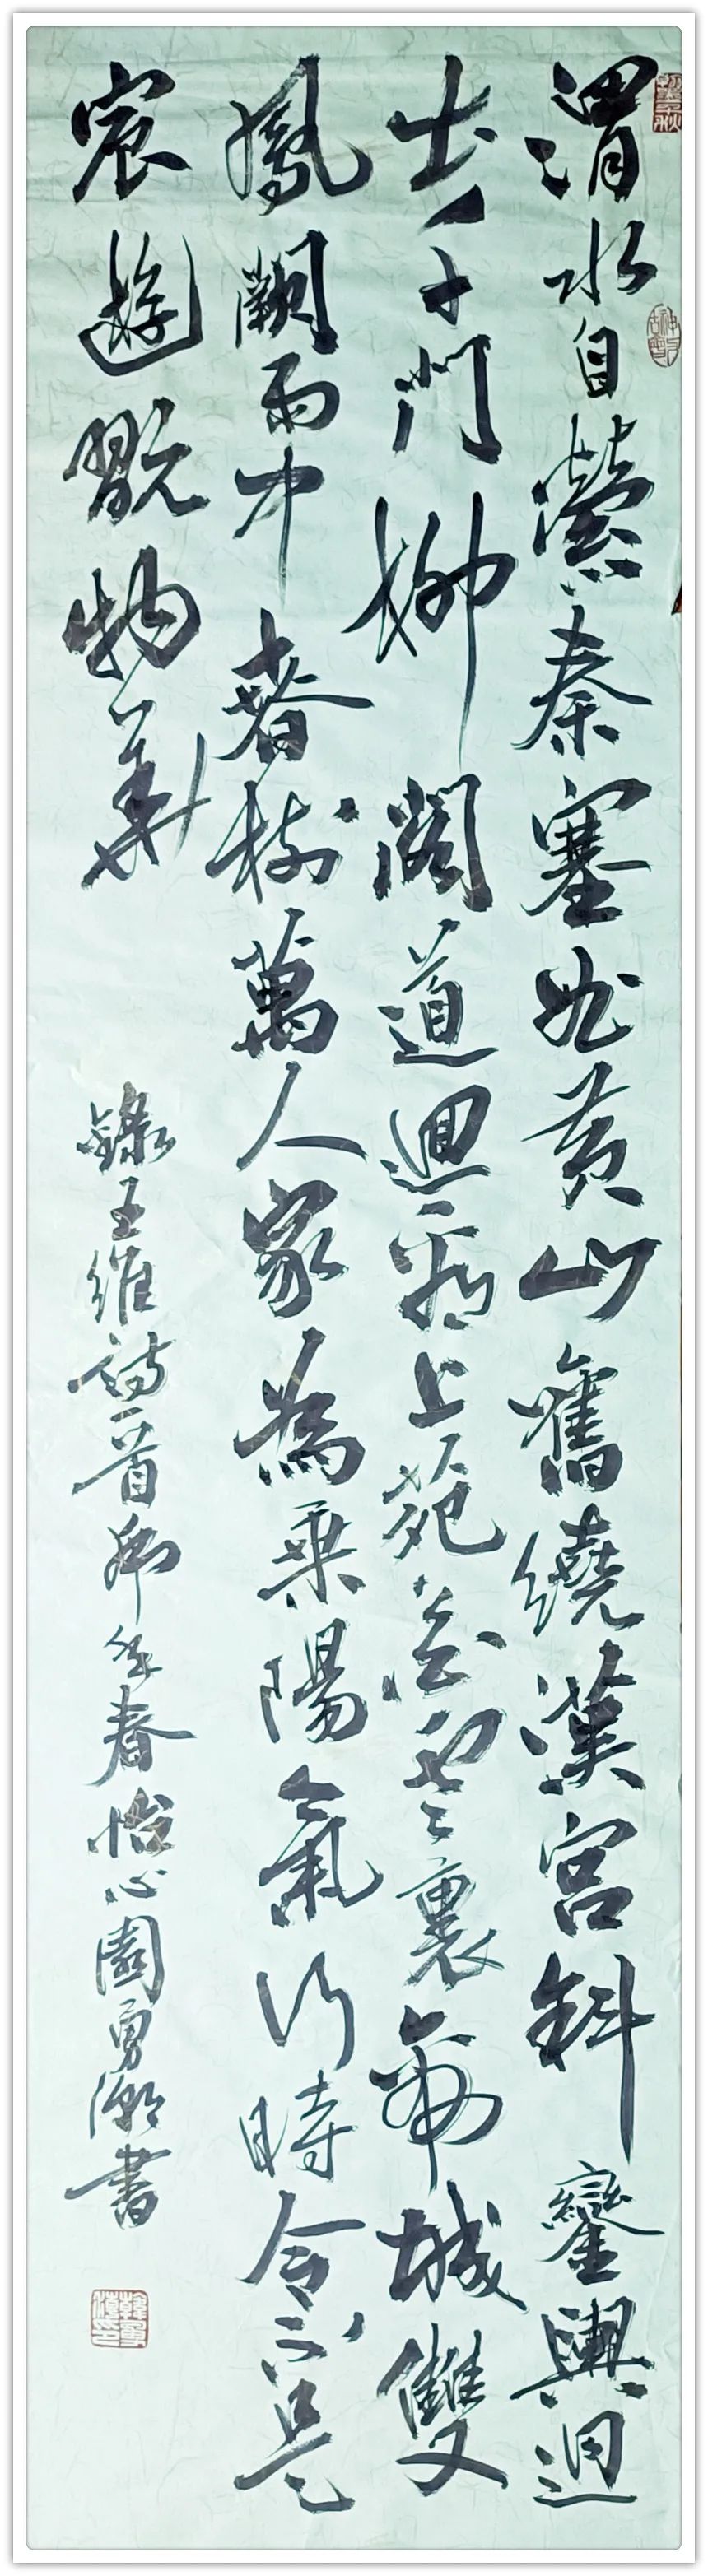 渭水自縈秦塞曲黃山舊繞漢宮斜鑾輿迥
出千門柳閣道迴看上苑花雲裏帝城雙
鳳闕雨中春樹萬人家為乘陽氣行時令不是
宸遊翫物華
錄王維詩一首卯年春怡心園勇潮書